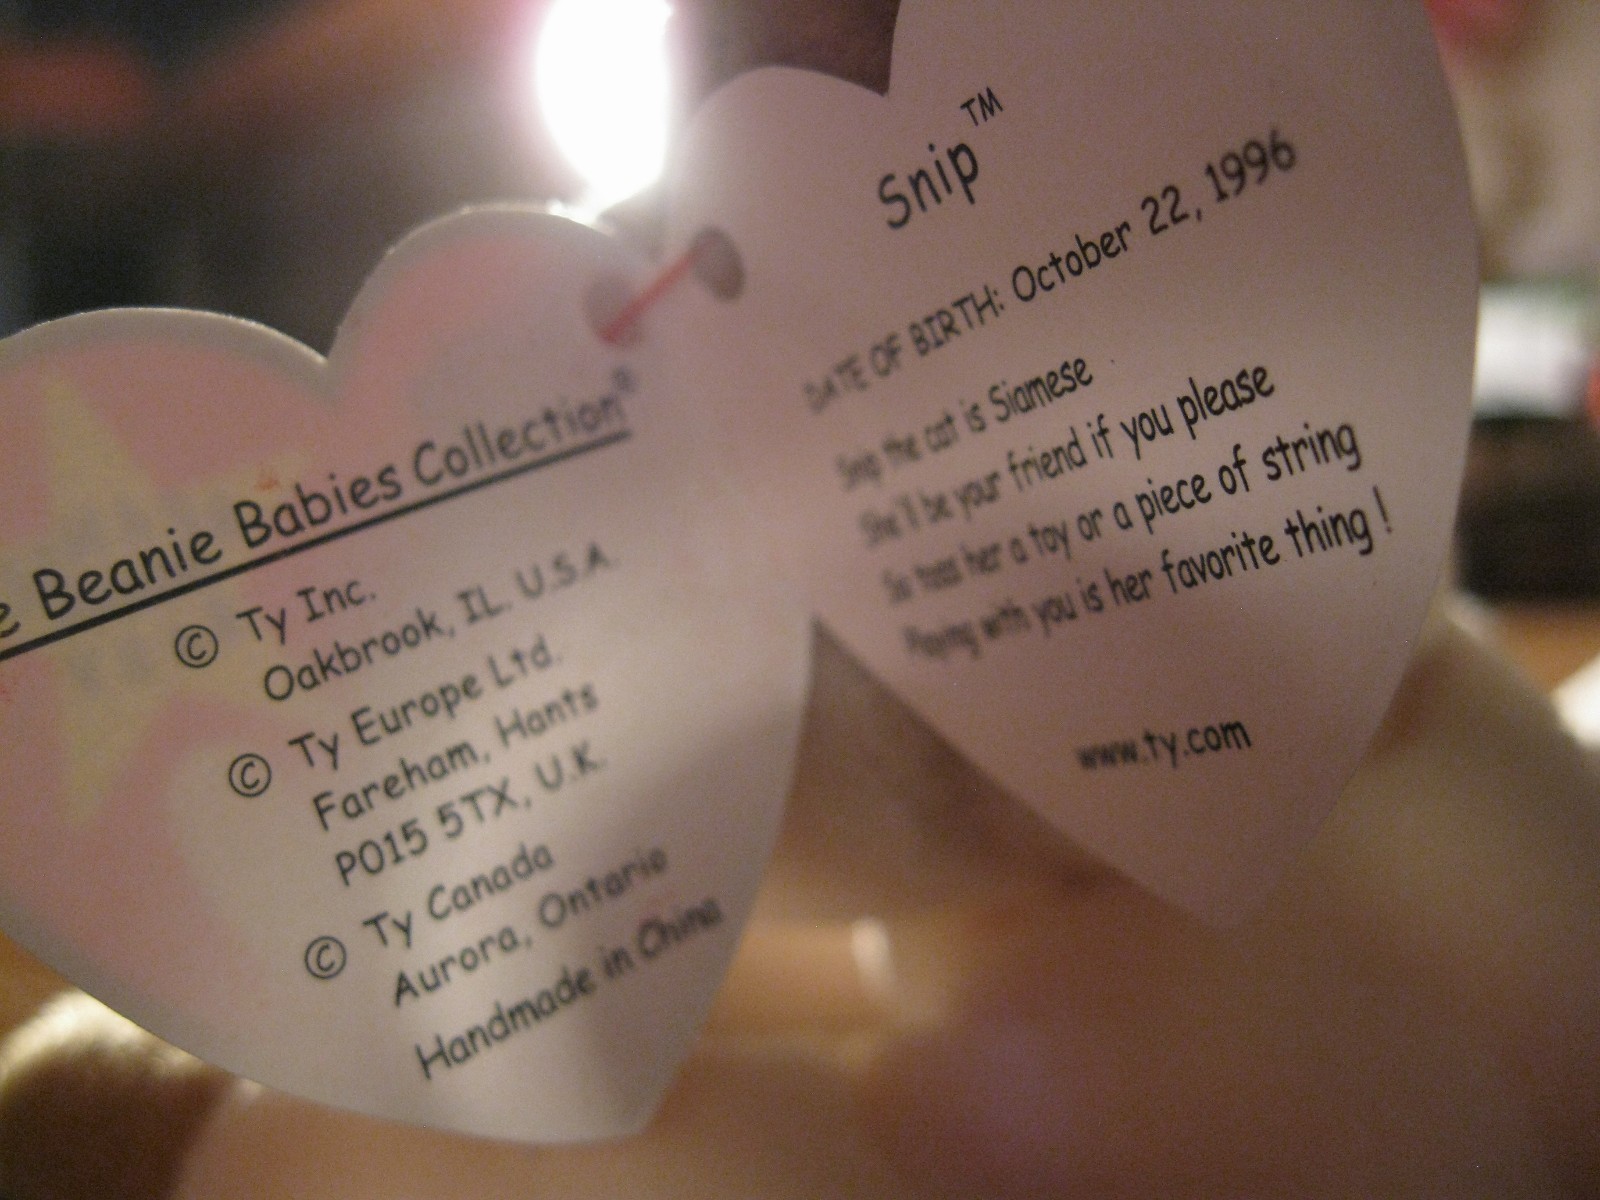 e Beanie Babies Collection®
© Ty Inc.
Oakbrook, IL. U.S.A.
© Ty Europe Ltd.
Fareham, Hants
PO15 5TX, U.K.
© Ty Canada
Aurora, Ontario
Handmade in China
Snip™
DATE OF BIRTH: October 22, 1996
Snip the cat is Siamese
She'll be your friend if you please
So toss her a toy or a piece of string
Playing with you is her favorite thing !
www.ty.com